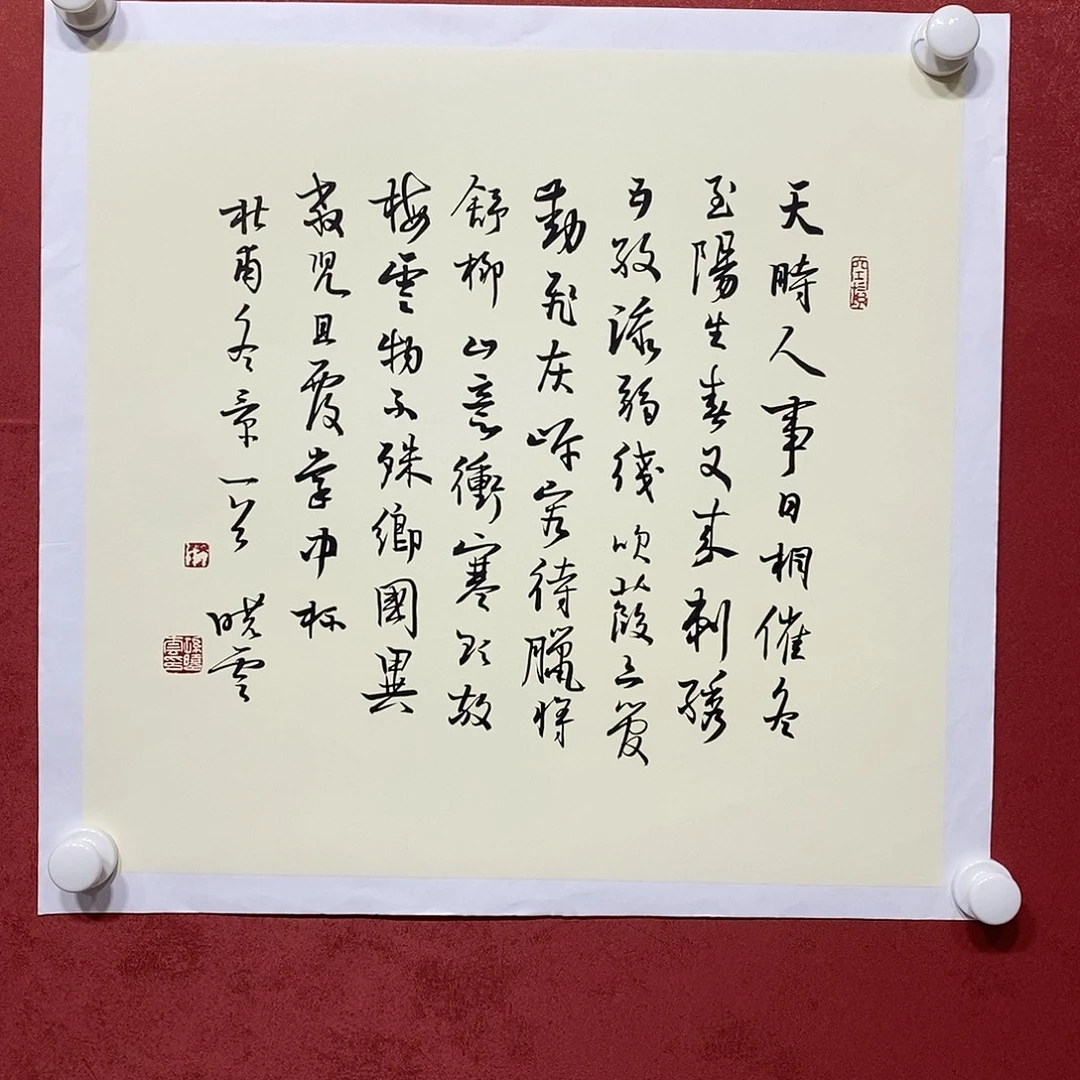 天時人事日相催冬
至陽生春又来刺繡
五紋添弱綫吹葭六管
動飛灰岸容待臘將
舒柳山意衝寒欲放
梅雲物不殊鄉國異
教兒且覆掌中杯
杜甫冬景一首 晓雲